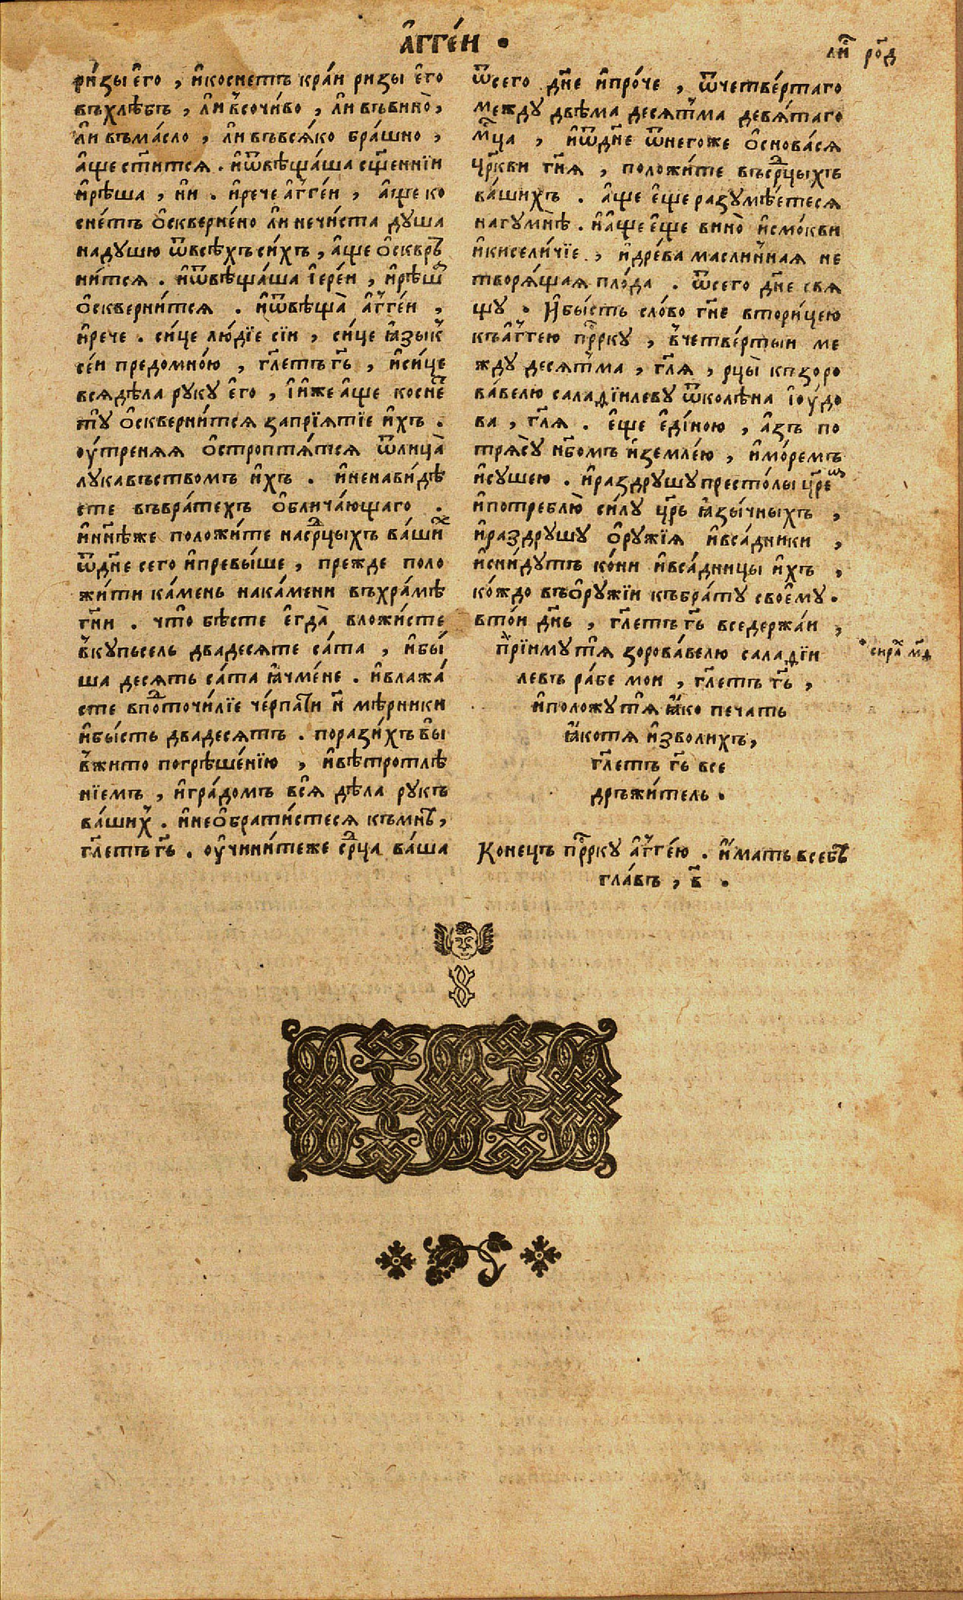 А҆ггє́и •
ли҇ ро҃д
ри́зы є҆го̀ , и҆коснетъ кра́и ризы є҆го̀
въхлѣ́бъ , ли̑ в̾сочи́во , ли̑ въвино̀ ,
ли̑ въма́сло , ли̑ въвся́ко бра́шно ,
а҆ще ст҃и́тся . и҆ѿвѣща́ша сщ҃е́нніи
и҆рѣша , ни̑ . и҆рече а҆гге́и , а҆ще ко
сне́тъ ѡ҆скверне́но ли̑ нечи́ста душа
надушю ѿвсѣ́хъ си́хъ , а҆ще ѡ҆сквр҃
ни́тся . и҆ѿвѣща́ша і҆ере́и , и҆рѣ́ша
ѡ҆скверни́тся . и҆ѿвѣща̀ а҆гге́и ,
и҆рече . си́це лю́дїе сїи , си́це ꙗ҆зы́к
се́и предомно́ю , гл҃етъ гь҃ , и҆си́це
всядѣ́ла руку є҆го̀ , и҆и́же а҆ще косне́
тъ ту̀ ѡ҆скверни́тся запрїя́тїе и҆́хъ .
оу҆́треняя ѡ҆стропття́тся ѿлица̀
лука́въствомъ и҆́хъ . и҆ненави́дѣ
сте въвра́техъ ѡ҆бличáющаго .
и҆ни҃нѣже положи́те насрⷣцыхъ ва́ши́х
ѿдн҃е сего̀ и҆превы́ше , пре́жде поло
жи́ти ка́мень нака́мени въхра́мѣ
гн҃и . что̀ бѣ́сте є҆гда̀ вложи́сте
в̾купьсель двадесяте са́та , и҆бы́
ша десять са́та ꙗ҆чме́не . и҆влажа́
сте впото́чилїе че́рпати н҃ мѣ́рники
и҆бы́сть двадесятъ . порази́хъ вы̀
в̾жи́то погрѣше́нїю , и҆вѣ́тротлѣ́
нїемъ , и҆гра́домъ вся̀ дѣ́ла рукъ
ва́ших . и҆неѡ҆брати́стеся къмнѣ̀ ,
гл҃етъ гь҃ . оу҆чини́теже срⷣца ва́ша
ѿсего̀ дн҃е и҆про́че , ѿчетве́ртаго
между двѣма десятьма девя́таго
мц҃а , и҆ѿдн҃е ѿнегоже ѡ҆снова́ся
цр҃кви гн҃я , положи́те въсрⷣцыхъ
ва́шихъ . а҆ще є҆ще разумѣ́етеся
нагумнѣ̀ . и҆а҆ще є҆ще вино̀ и҆смо́кви
и҆киселичїе , и҆дре́ва масли́чная не
творя́щая пло́да . ѿсего̀ дн҃е свя
щу̀ . И҆бы́сть сло́во гн҃е вторицею
къа҆гге́ю прⷪ҇рку , в̾четве́ртыи ме
жду десятма , гл҃я , рцы̀ къзоро
ва́велю салаѳїилеву ѿколѣ́на і҆оу́до
ва , гл҃я . є҆ще є҆ди́ною , а҆́зъ по
тря́су нб҃омъ и҆земле́ю , и҆мо́ремъ
и҆су́шею . и҆раздрушу престо́лы цр҃е́и
и҆потреблю̀ си́лу цр҃ь ꙗ҆зы́чныхъ ,
и҆раздрушу ѡ҆ружїя и҆вса́дники ,
и҆сни́дутъ ко́ни и҆вса́дницы и҆́хъ ,
ко́ждо въѡ҆ружїи къбра́ту своє́му .
втои́ дн҃ь , гл҃етъ гь҃ вседержа́и ,
прїиму́ тя зорова́велю салаѳїи
левъ ра́бе мои , гл҃етъ гь҃ ,
и҆положу́ тя ꙗ҆́ко печа́ть
ꙗ҆́котя и҆зволи́хъ ,
гл҃етъ гь҃ все
дръжи́тель .
* сира҃ м҃ѳ
Коне́цъ прⷪ҇рку а҆гге́ю . и҆́мать всебѣ̀
гла́въ , в҃ .